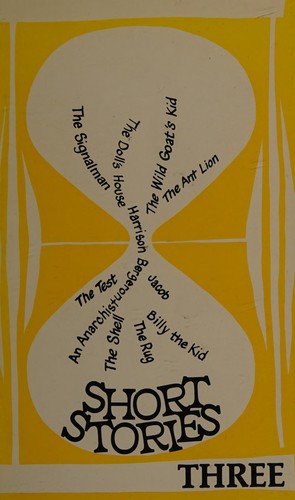 The Signalman
The Doll's House
The Wild Goat's Kid
The Ant Lion
Harrison Bergeron
Jacob
The Test
An Anarchist
The Shell
The Rug
Billy the Kid
SHORT
STORIES
THREE